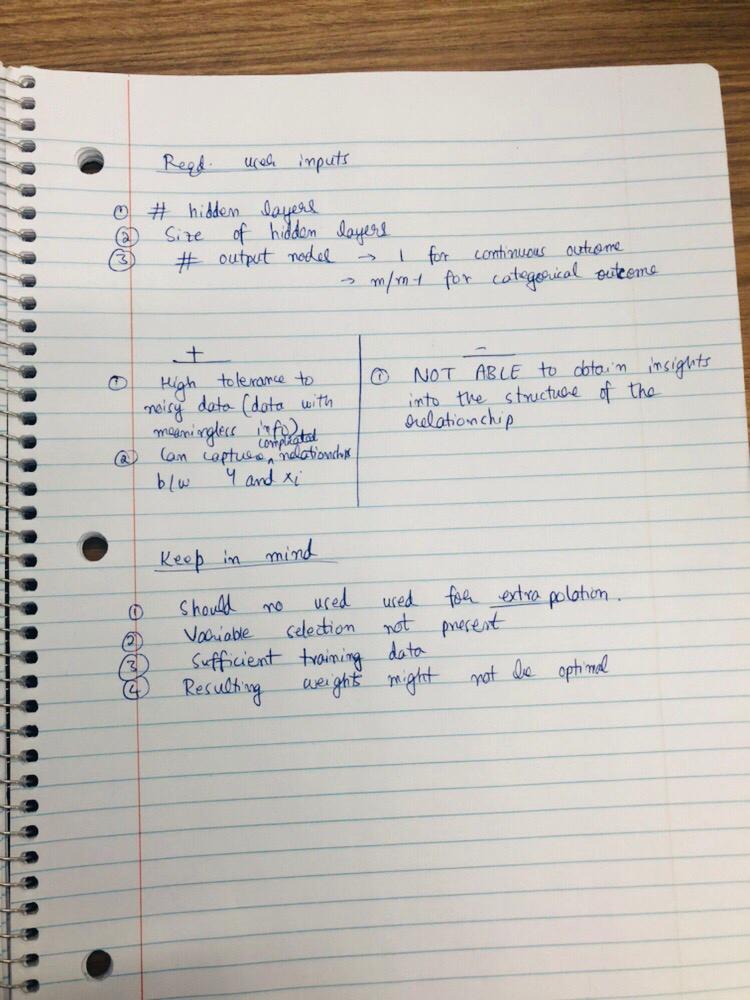 Reqd. user inputs
① # hidden layers
② Size of hidden layers
③ # output nodes → 1 for continuous outcome
→ m/m-1 for categorical outcome
+
① High tolerance to
noisy data (data with
meaningless info)
② Can capture complicated relationships
b/w Y and xi
-
① NOT ABLE to obtain insights
into the structure of the
relationship
Keep in mind
① Should no used used for extrapolation.
② Variable selection not present
③ Sufficient training data
④ Resulting weights might not be optimal